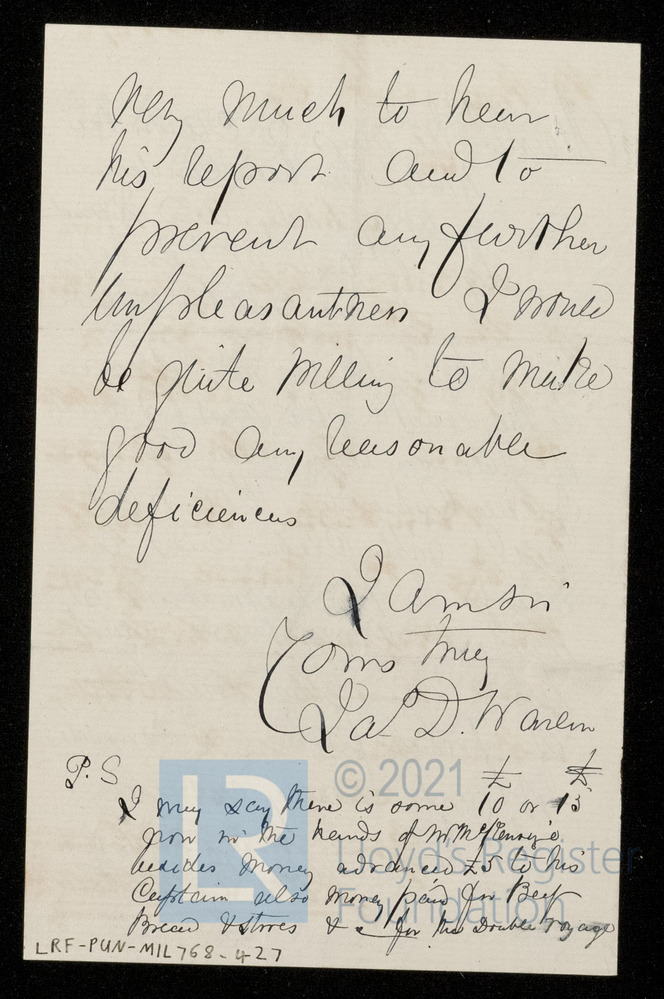 very much to hear
his report and to
prevent any further
unpleasantness I would
be quite willing to make
good any reasonable
deficiences
I am sir
Yours truly
Jas D. Warren
P.S
£ £
I may say there is some 10 or 15
in the hands of Mr McKenzie
besides money advanced £5 to his
Captain also money paid for Beef
Bread & stores & for the Double Voyage
LRF-PUN-MIL768-427
© 2021
LR
Lloyd's Register
Foundation